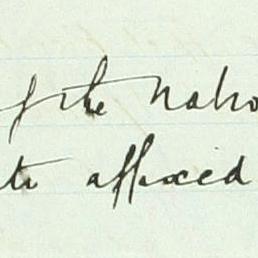 of the Natio
to affixed